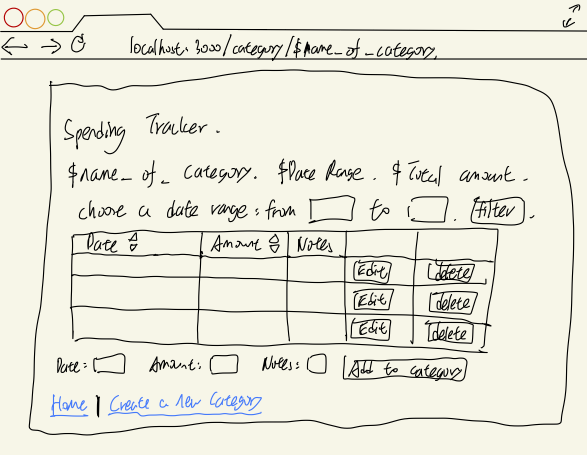 localhost: 3000/category/$name_of_category.
Spending Tracker.
$name_of_category. $Date Range. $Total amount.
choose a date range: from to . filter.
Date Amount Notes
Edit delete
Edit delete
Edit delete
Date: Amount: Notes: Add to category
Home | Create a new Category